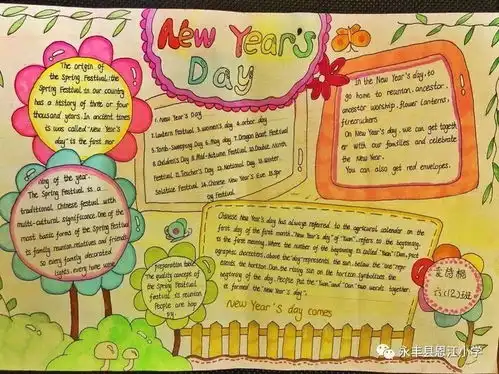 New Year's
Day
The origin of
the Spring Festival: the
Spring Festival in our country
has a history of three or four
thousand years. In ancient times
is was called "New Year's
day" is the first mor
ning of the year.
The Spring Festival is a
traditional Chinese festival with
multi-cultural significance. One of the
most basic forms of the Spring Festival
is family reunion, relatives and friends
so every family decorated
lights, every home wine
1. New Year's Day
7. Lantern Festival 3. women's day 4. arbor day
5. Tomb-Sweeping Day 6. May day 7. Dragon Boat Festival
8. Children's Day 9. Mid-Autumn Festival 10. Double Ninth
Festival 11. Teacher's Day 12. National Day 13. winter
Solstice Festival 14. Chinese New Year's Eve 15. Spr
ing Festival
In the New Year's day, to
go home to reunion, ancestor
ancestor worship, flower lanterns,
firecrackers
On New Year's day, we can get togeth
er with our families and celebrate
the New Year.
You can also get red envelopes.
preparation take
The quality concept of
the Spring Festival
festival is reunion
People are hop
py.
Chinese New Year's day has always referred to the agricural calendar on the
first day of the first month. "New Year's day" of "Yuan", refers to the beginning,
is the first meaning. Where the number of the beginning, is called "Yuan"; Dan, pict
ographic characters, above the "day" represents the sun, below the "one" repr
esents the horizon. Dan, the rising sun on the horizon, symbolizes the
beginning of the day. People put the "Yuan" and "Dan" two words together
is formed the "New Year's day".
new Year's day comes
六(12)班
永丰县恩江小学